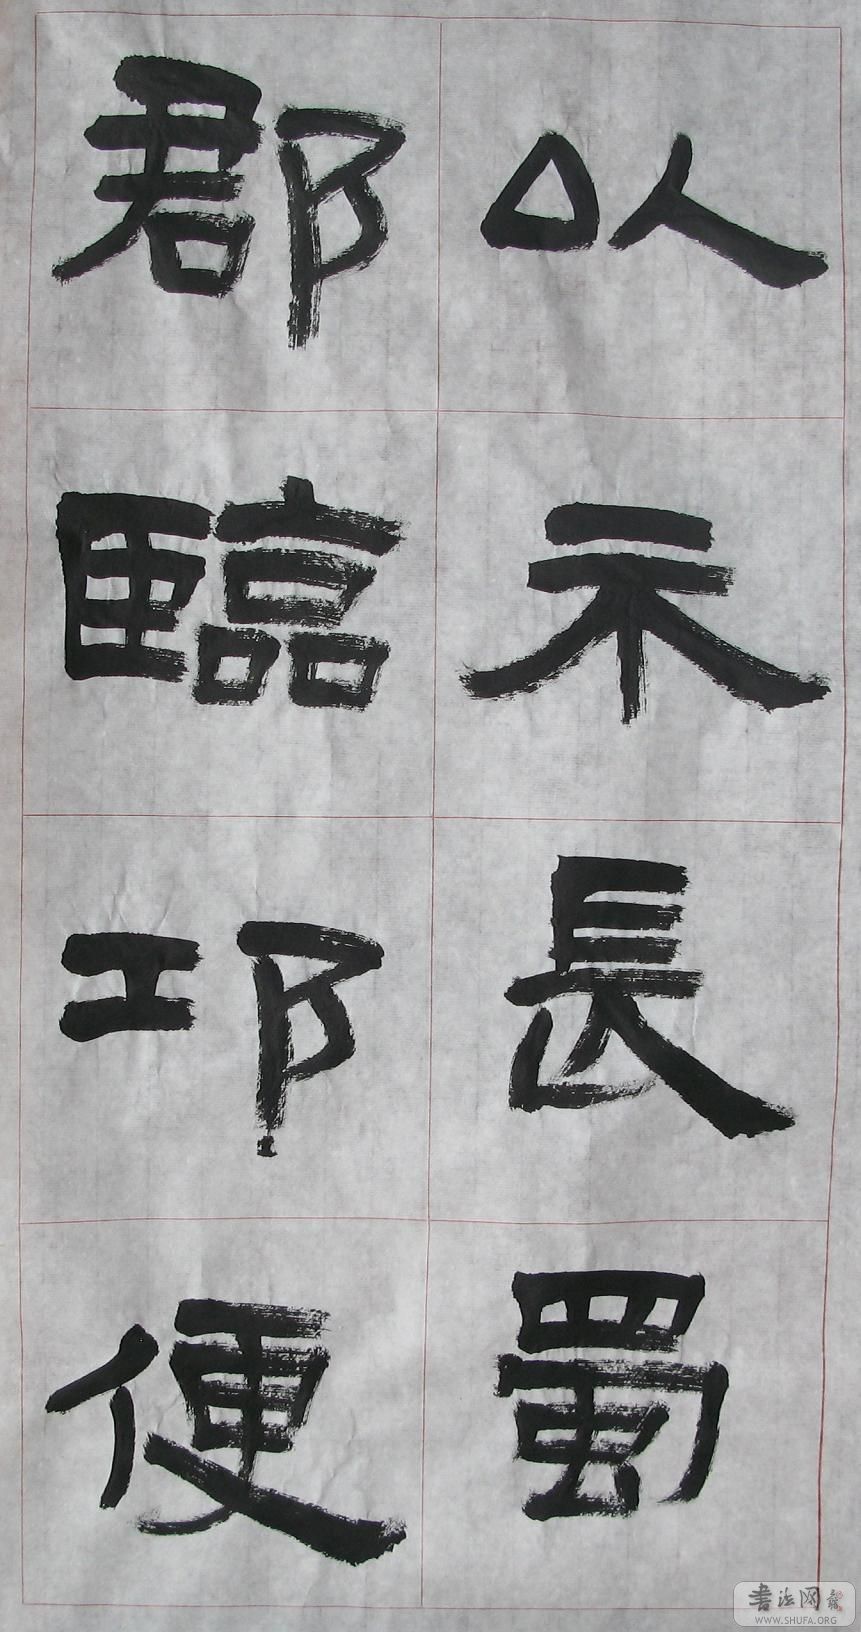 以示長蜀
郡臨邛便
書法网
WWW.SHUFA.ORG